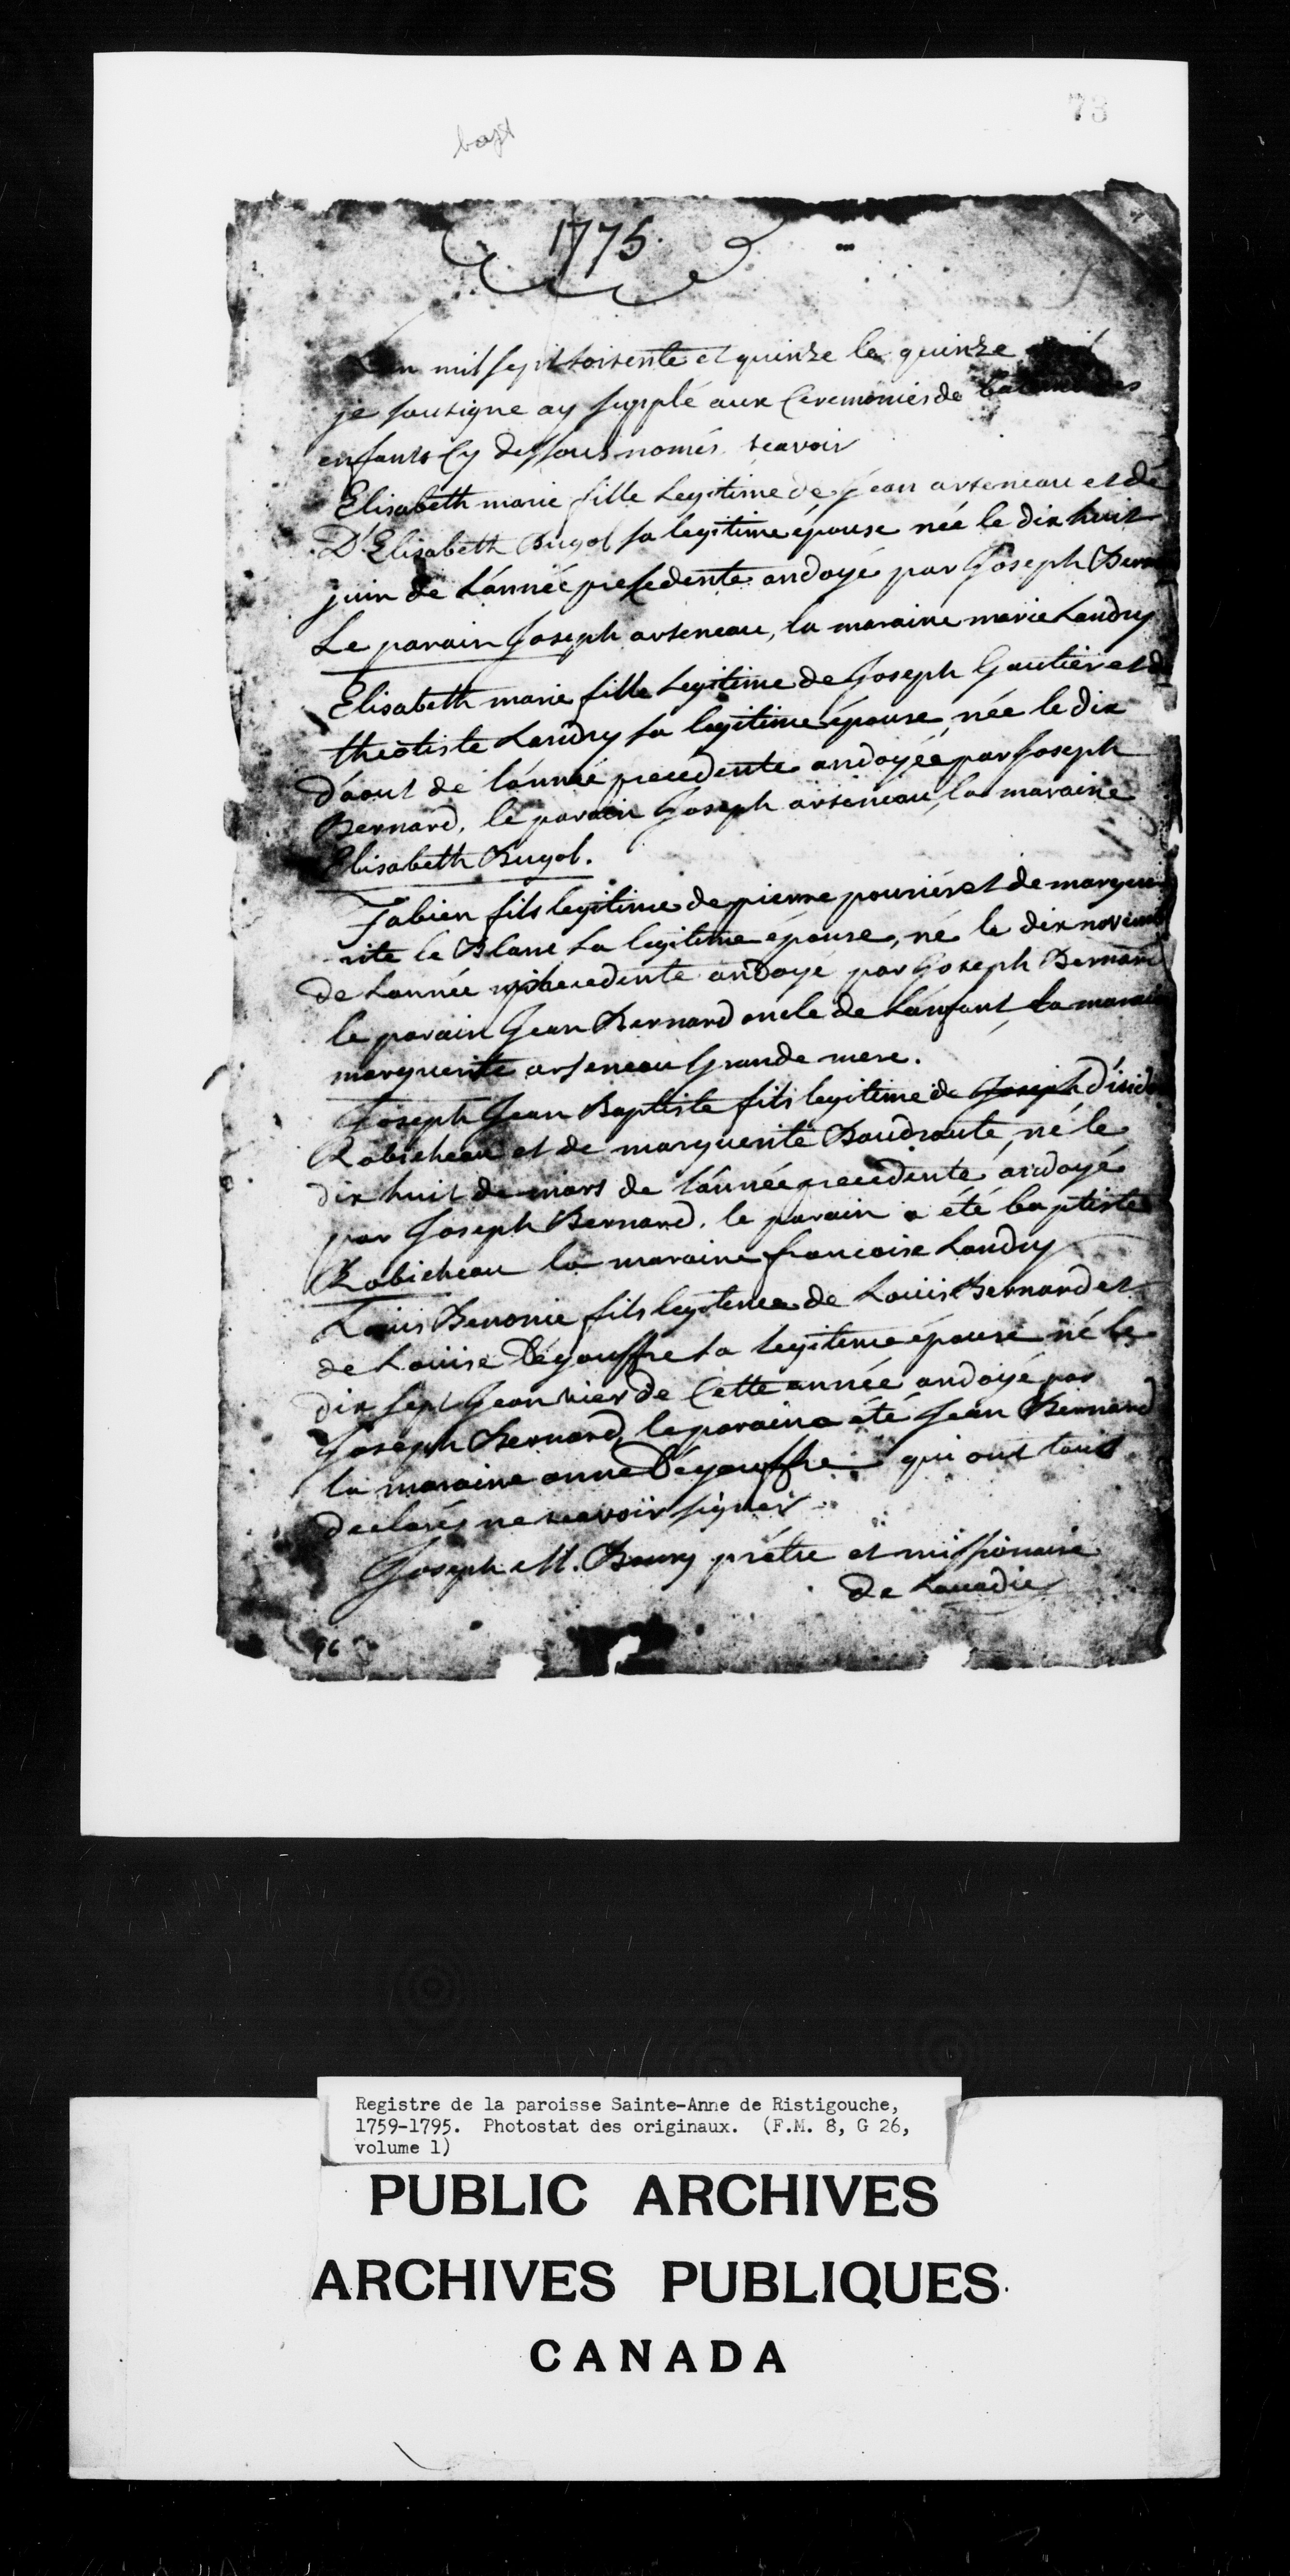 73
bapt
1775
L'an mil sept soisente et quinze le quinze
je sousigne ay supplé aux Ceremonies de
enfants Cy dessous només scavoir
Elisabeth marie fille Legitime de Jean arseneau et de
D'Elisabeth Bugol sa legitime épouse née le dix huit
juin de L'année presedente andoyé par Joseph
Le parain Joseph arseneau, la maraine marie Landry
Elisabeth marie fille Legitime de Joseph Gautier et de
theotiste Landry sa legitime épouse née le dix
d'aout de l'année precedente andoyée par Joseph
Bernard, le parain Joseph arseneau, la maraine
Elisabeth Bugol.
Fabien fils legitime de pierre pouriér et de margue
rite le Blanc sa legitime épouse, né le dix
de Lannée andoyé par Joseph Bernard
le parain Jean Bernard oncle de Lanfant, la
marguerite arseneau Grande mere.
Joseph Jean Baptiste fils legitime de Joseph
Robicheau et de marguerite Boudraute, né le
dix huit de mars de l'année precedente andoyé
par Joseph Bernard, le parain a été baptiste
Robicheau la maraine francoise Landry
Louis Benonie fils legiteme de Louis Bernard et
de Louise Dégouffre sa legiteme épouse né le
dix sept Jeanvier de Cette année andoyé par
Joseph Bernard, le parain a été Jean Bernard
la maraine anne Dégouffre qui ont tous
declarés ne scavoir signer
Joseph M. Bourg prêtre et missionaire
de Lacadie
96
Registre de la paroisse Sainte-Anne de Ristigouche,
1759-1795. Photostat des originaux. (F.M. 8, G 26,
volume 1)
PUBLIC ARCHIVES
ARCHIVES PUBLIQUES
CANADA